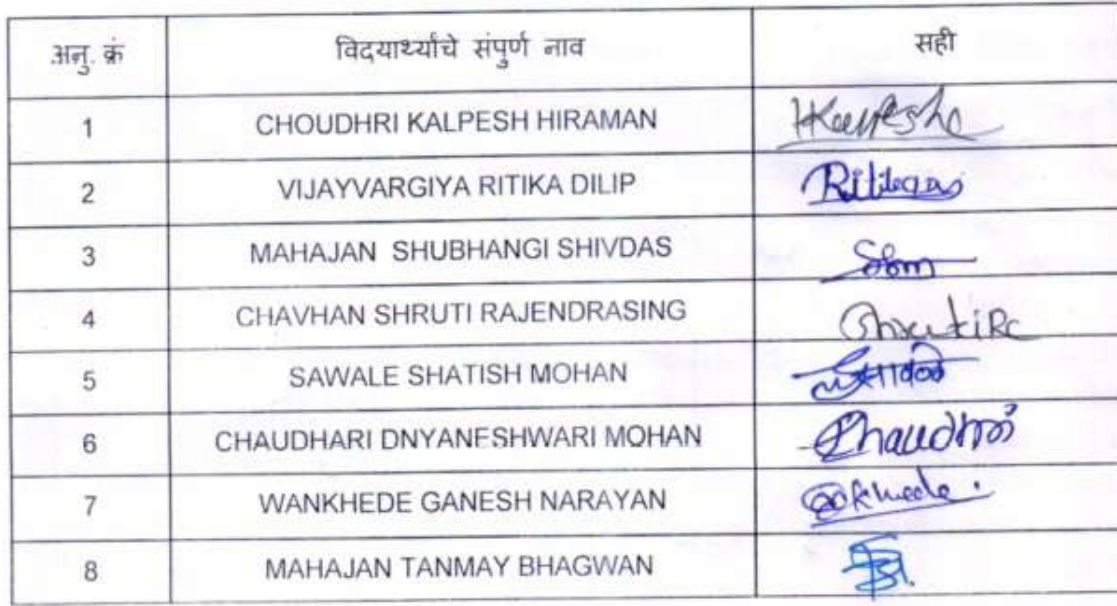 अनु. क्रं विदयार्थ्यांचे संपुर्ण नाव सही
1 CHOUDHRI KALPESH HIRAMAN HKalpesh
2 VIJAYVARGIYA RITIKA DILIP
3 MAHAJAN SHUBHANGI SHIVDAS
4 CHAVHAN SHRUTI RAJENDRASING ShrutiRC
5 SAWALE SHATISH MOHAN
6 CHAUDHARI DNYANESHWARI MOHAN
7 WANKHEDE GANESH NARAYAN
8 MAHAJAN TANMAY BHAGWAN